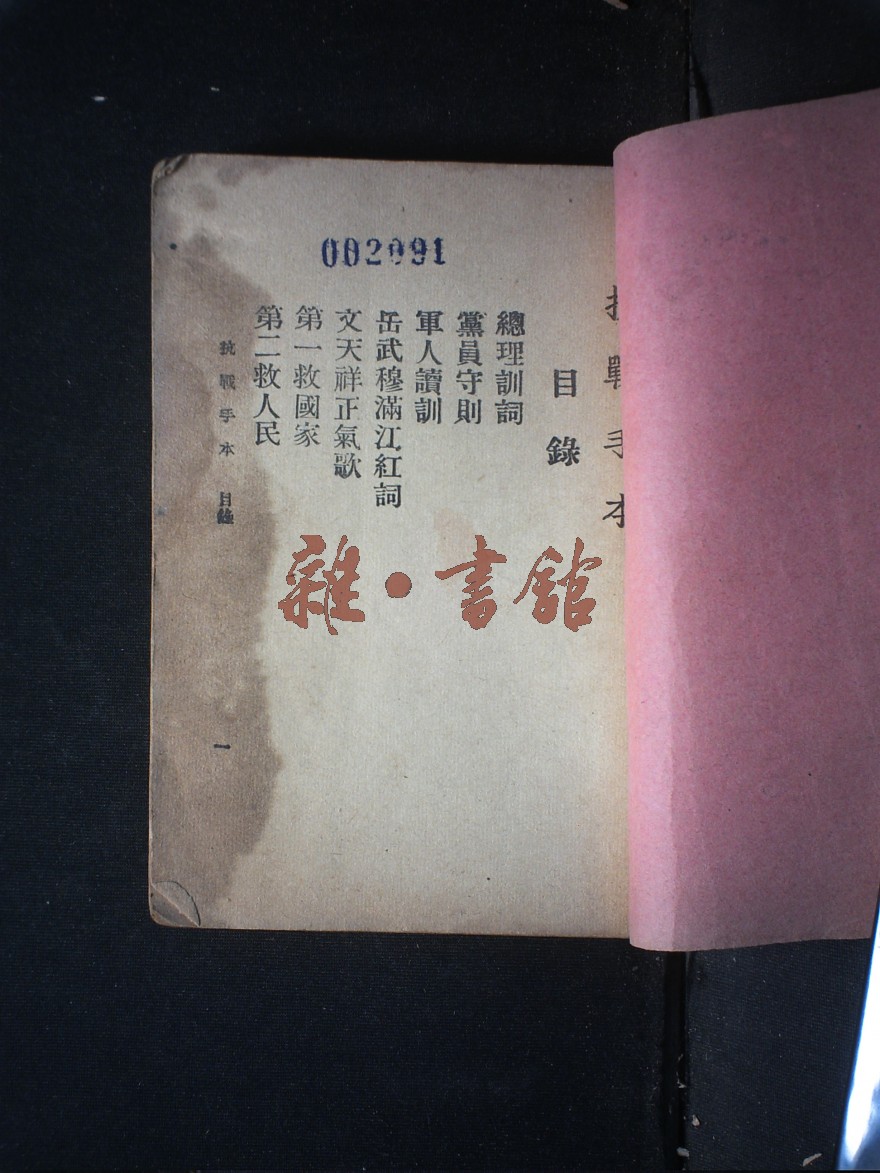 002091
抗戰手本
目錄
總理訓詞
黨員守則
軍人讀訓
岳武穆滿江紅詞
文天祥正氣歌
第一救國家
第二救人民
抗戰手本 目錄
一
雜·書館